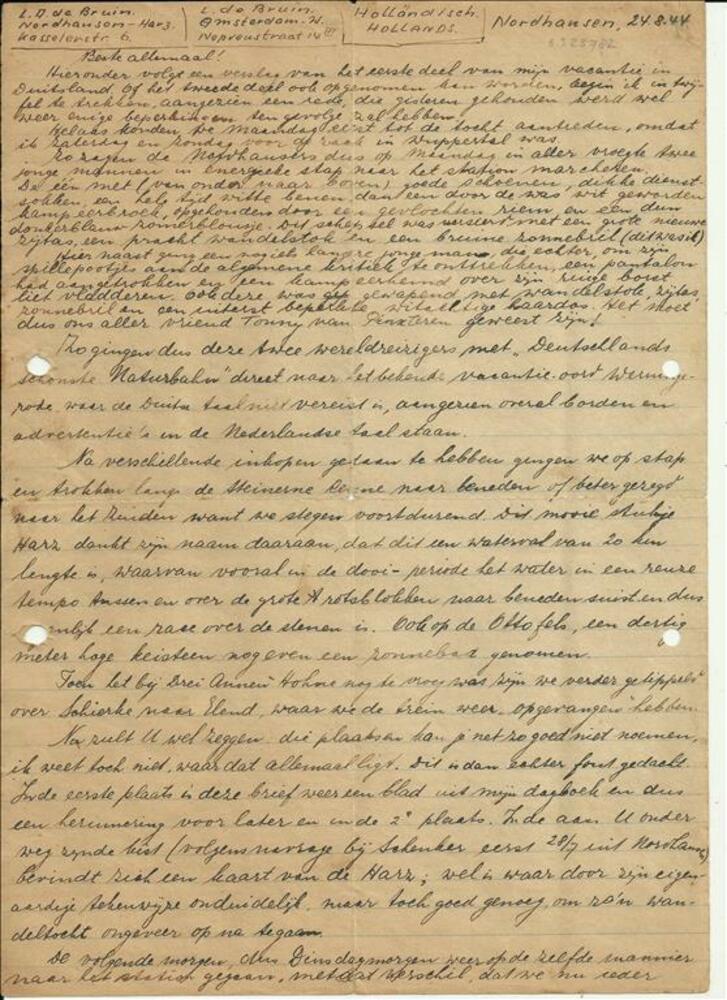 L. D. de Bruin.
Nordhausen-Harz.
Kasselerstr. 6.
L. de Bruin.
Amsterdam. W.
Nepveustraat 14 III
Holländisch
HOLLANDS.
Nordhausen, 24.8.44
Beste allemaal!
Hieronder volgt een verslag van het eerste deel van mijn vacantie in
Duitsland. Of het tweede deel ook opgenomen kan worden, begin ik in twij-
fel te trekken, aangezien een rede, die gisteren gehouden werd wel
weer enige beperkingen ten gevolge zal hebben.
Helaas konden we Maandag eerst tot de tocht aantreden, omdat
ik Zaterdag en Zondag voor de zaak in Wuppertal was.
Zo zagen de Nordhausers dus op Maandag in aller vroegte twee
jonge mannen in energieke stap naar het station marcheren.
De één met (van onder naar boven) goede schoenen, dikke dienst-
sokken, een hele tijd witte benen, dan een door de was wit geworden
kampeerbroek, opgehouden door een gevlochten riem, en een dun
donkerblauw zomerblousje. Dit schepsel was versierd met een grote nieuwe
zijtas, een pracht wandelstok en een bruine zonnebril (dit was ik)
Hier naast ging een nogiets langre jonge man, die echter, om zijn
spillepootjes aan de algemene kritiek te onttrekken, een pantalon
had aangetrokken en een kampeerhemd over zijn ruige borst
liet vladderen. Ook deze was gewapend met wandelstok, zijtas
zonnebril en een uiterst beperkte haardos. Het moet
dus ons aller vriend Tonny van Pinxteren geweest zijn!
Zo gingen dus deze twee wereldreizigers met "Deutschlands
schönste Naturbahn" direct naar het bekende vacantie-oord Wernige-
rode, waar de Duitse taal niet vereist is, aangezien overal borden en
advertentie's in de Nederlandse taal staan.
Na verschillende inkopen gedaan te hebben gingen we op stap
en trokken langs de Steinerne Renne naar beneden of beter gezegd
naar het Zuiden want we stegen voortdurend. Dit mooie stukje
Harz dankt zijn naam daaraan, dat dit een waterval van 20 km
lengte is, waarvan vooral in de dooi-periode het water in een reuze
tempo tussen en over de grote rotsblokken naar beneden suist en dus
een race over de stenen is. Ook op de Ottofels, een dertig
meter hoge keisteen nog even een zonnebad genomen.
Toen het bij Drei Annen Hohne nog te vroeg was zijn we verder getippeld
over Schierke naar Elend, waar we de trein weer "opgevangen" hebben.
Nu zult U wel zeggen: die plaatsen kan je net zo goed niet noemen,
ik weet toch niet, waar dat allemaal ligt. Dit is dan echter fout gedacht.
In de eerste plaats is deze brief weer een blad uit mijn dagboek en dus
een herinnering voor later en in de 2e plaats. In de aan U onder
weg zijnde kist (volgens navrage bij Schenker eerst 28/7 uit Nordhausen)
bevindt zich een kaart van de Harz; wel is waar door zijn eigen-
aardige tekenwijze onduidelijk, maar toch goed genoeg, om zo'n wan-
deltocht ongeveer op na te gaan.
De volgende morgen, dus Dinsdagmorgen weer op de zelfde manier
naar het station gegaan, met dat verschil, dat we nu ieder